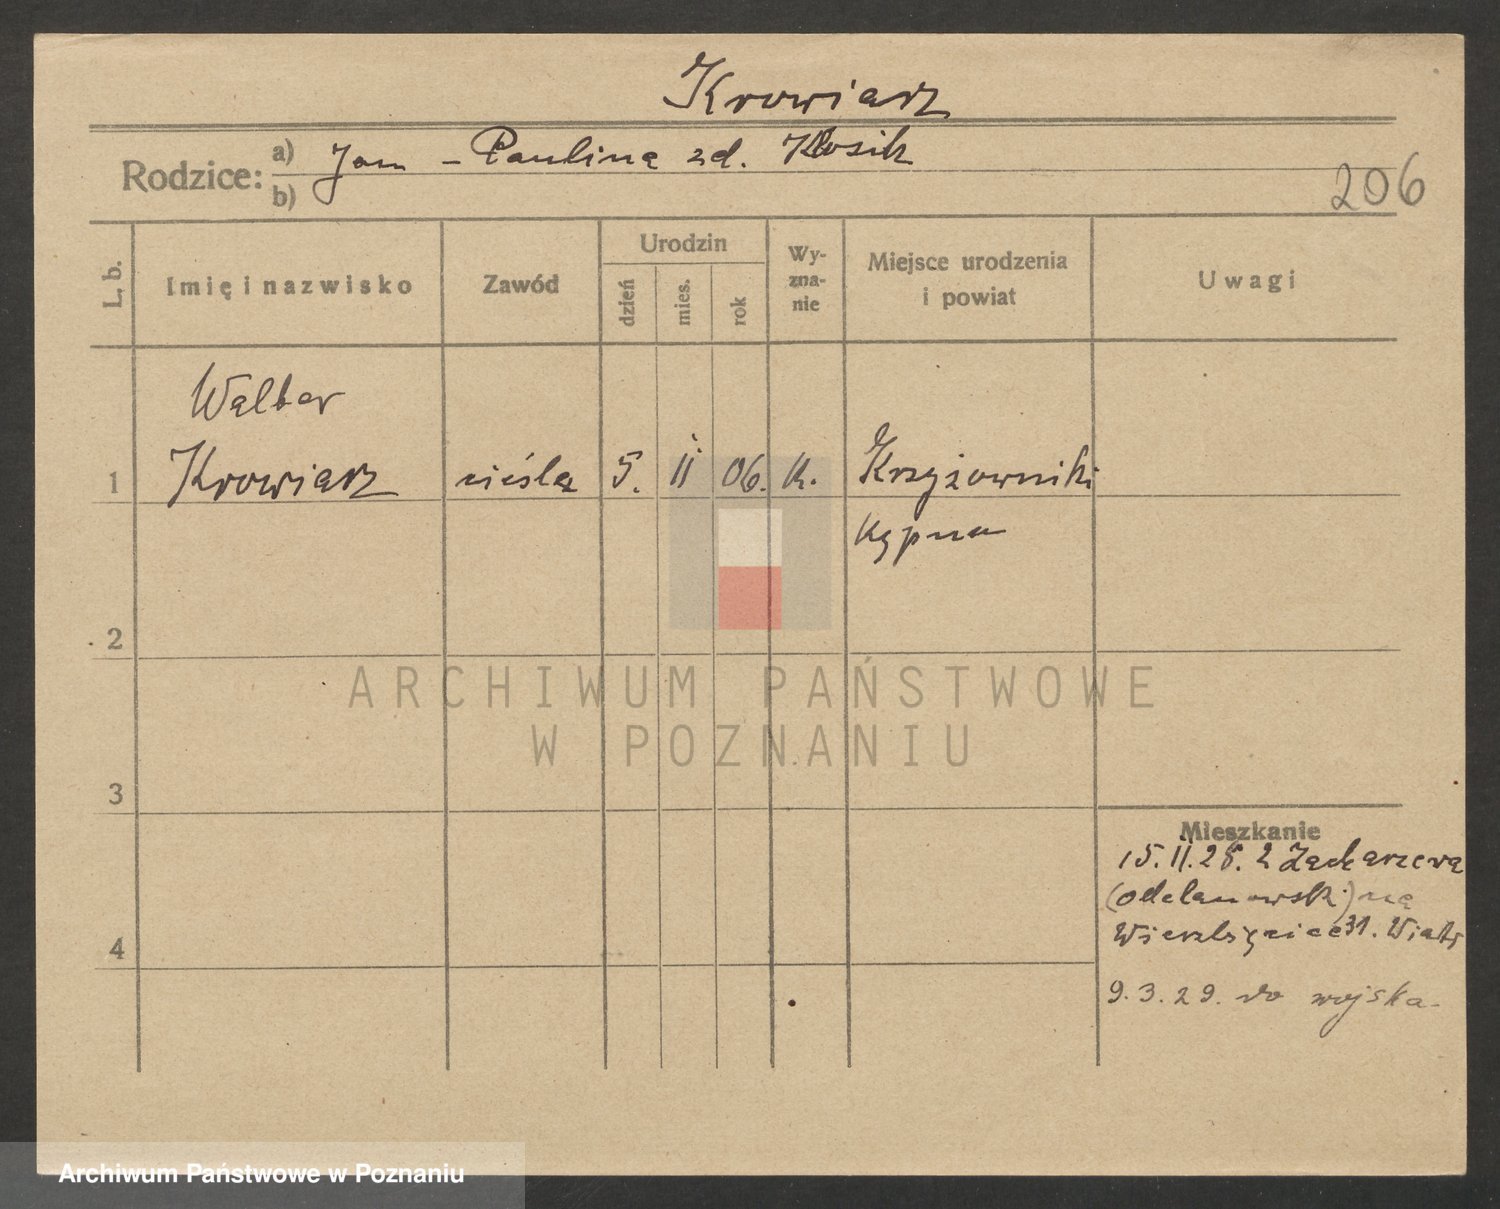 Krowiarz
Rodzice: a) Jan - Paulina zd. Kłosik
b)
206
L. b.
Imię i nazwisko
Zawód
Urodzin
dzień
mies.
rok
Wy-
zna-
nie
Miejsce urodzenia
i powiat
Uwagi
Walter
1 Krowiarz cieśla 5. II 06. k. Krzyżowniki
Kępno
2
ARCHIWUM PAŃSTWOWE
W POZNANIU
3
Mieszkanie
15.II.28. z Zacharzewa
(odolanowski) na
4 Wierzbięcice 31.
9.3.29. do wojska.
Archiwum Państwowe w Poznaniu